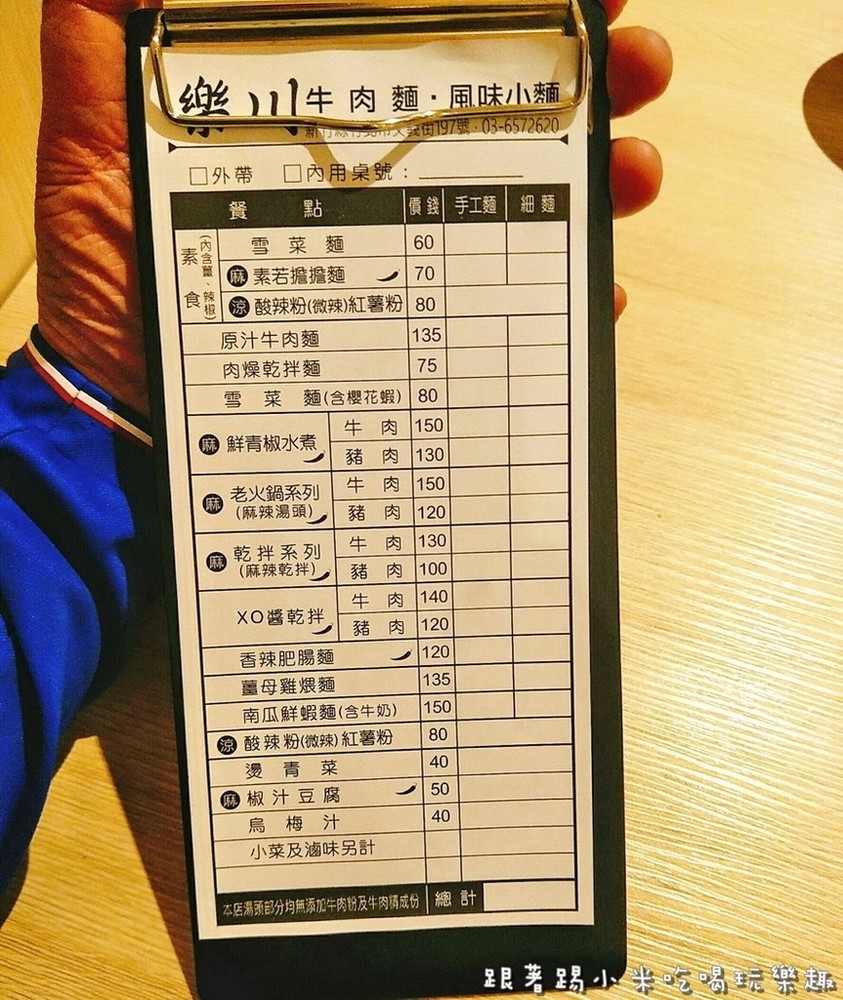 樂川 牛肉麵・風味小麵
新竹縣竹北市文義街197號・03-6572620
□外帶 □內用桌號：
餐點 價錢 手工麵 細麵
素食 (內含薑、辣椒)
雪菜麵 60
麻 素若擔擔麵 70
涼 酸辣粉(微辣)紅薯粉 80
原汁牛肉麵 135
肉燥乾拌麵 75
雪菜麵(含櫻花蝦) 80
麻 鮮青椒水煮 牛肉 150
豬肉 130
麻 老火鍋系列 (麻辣湯頭) 牛肉 150
豬肉 120
麻 乾拌系列 (麻辣乾拌) 牛肉 130
豬肉 100
XO醬乾拌 牛肉 140
豬肉 120
香辣肥腸麵 120
薑母雞煨麵 135
南瓜鮮蝦麵(含牛奶) 150
涼 酸辣粉(微辣)紅薯粉 80
燙青菜 40
麻 椒汁豆腐 50
烏梅汁 40
小菜及滷味另計
本店湯頭部分均無添加牛肉粉及牛肉精成份 總計
跟著踢小米吃喝玩樂趣